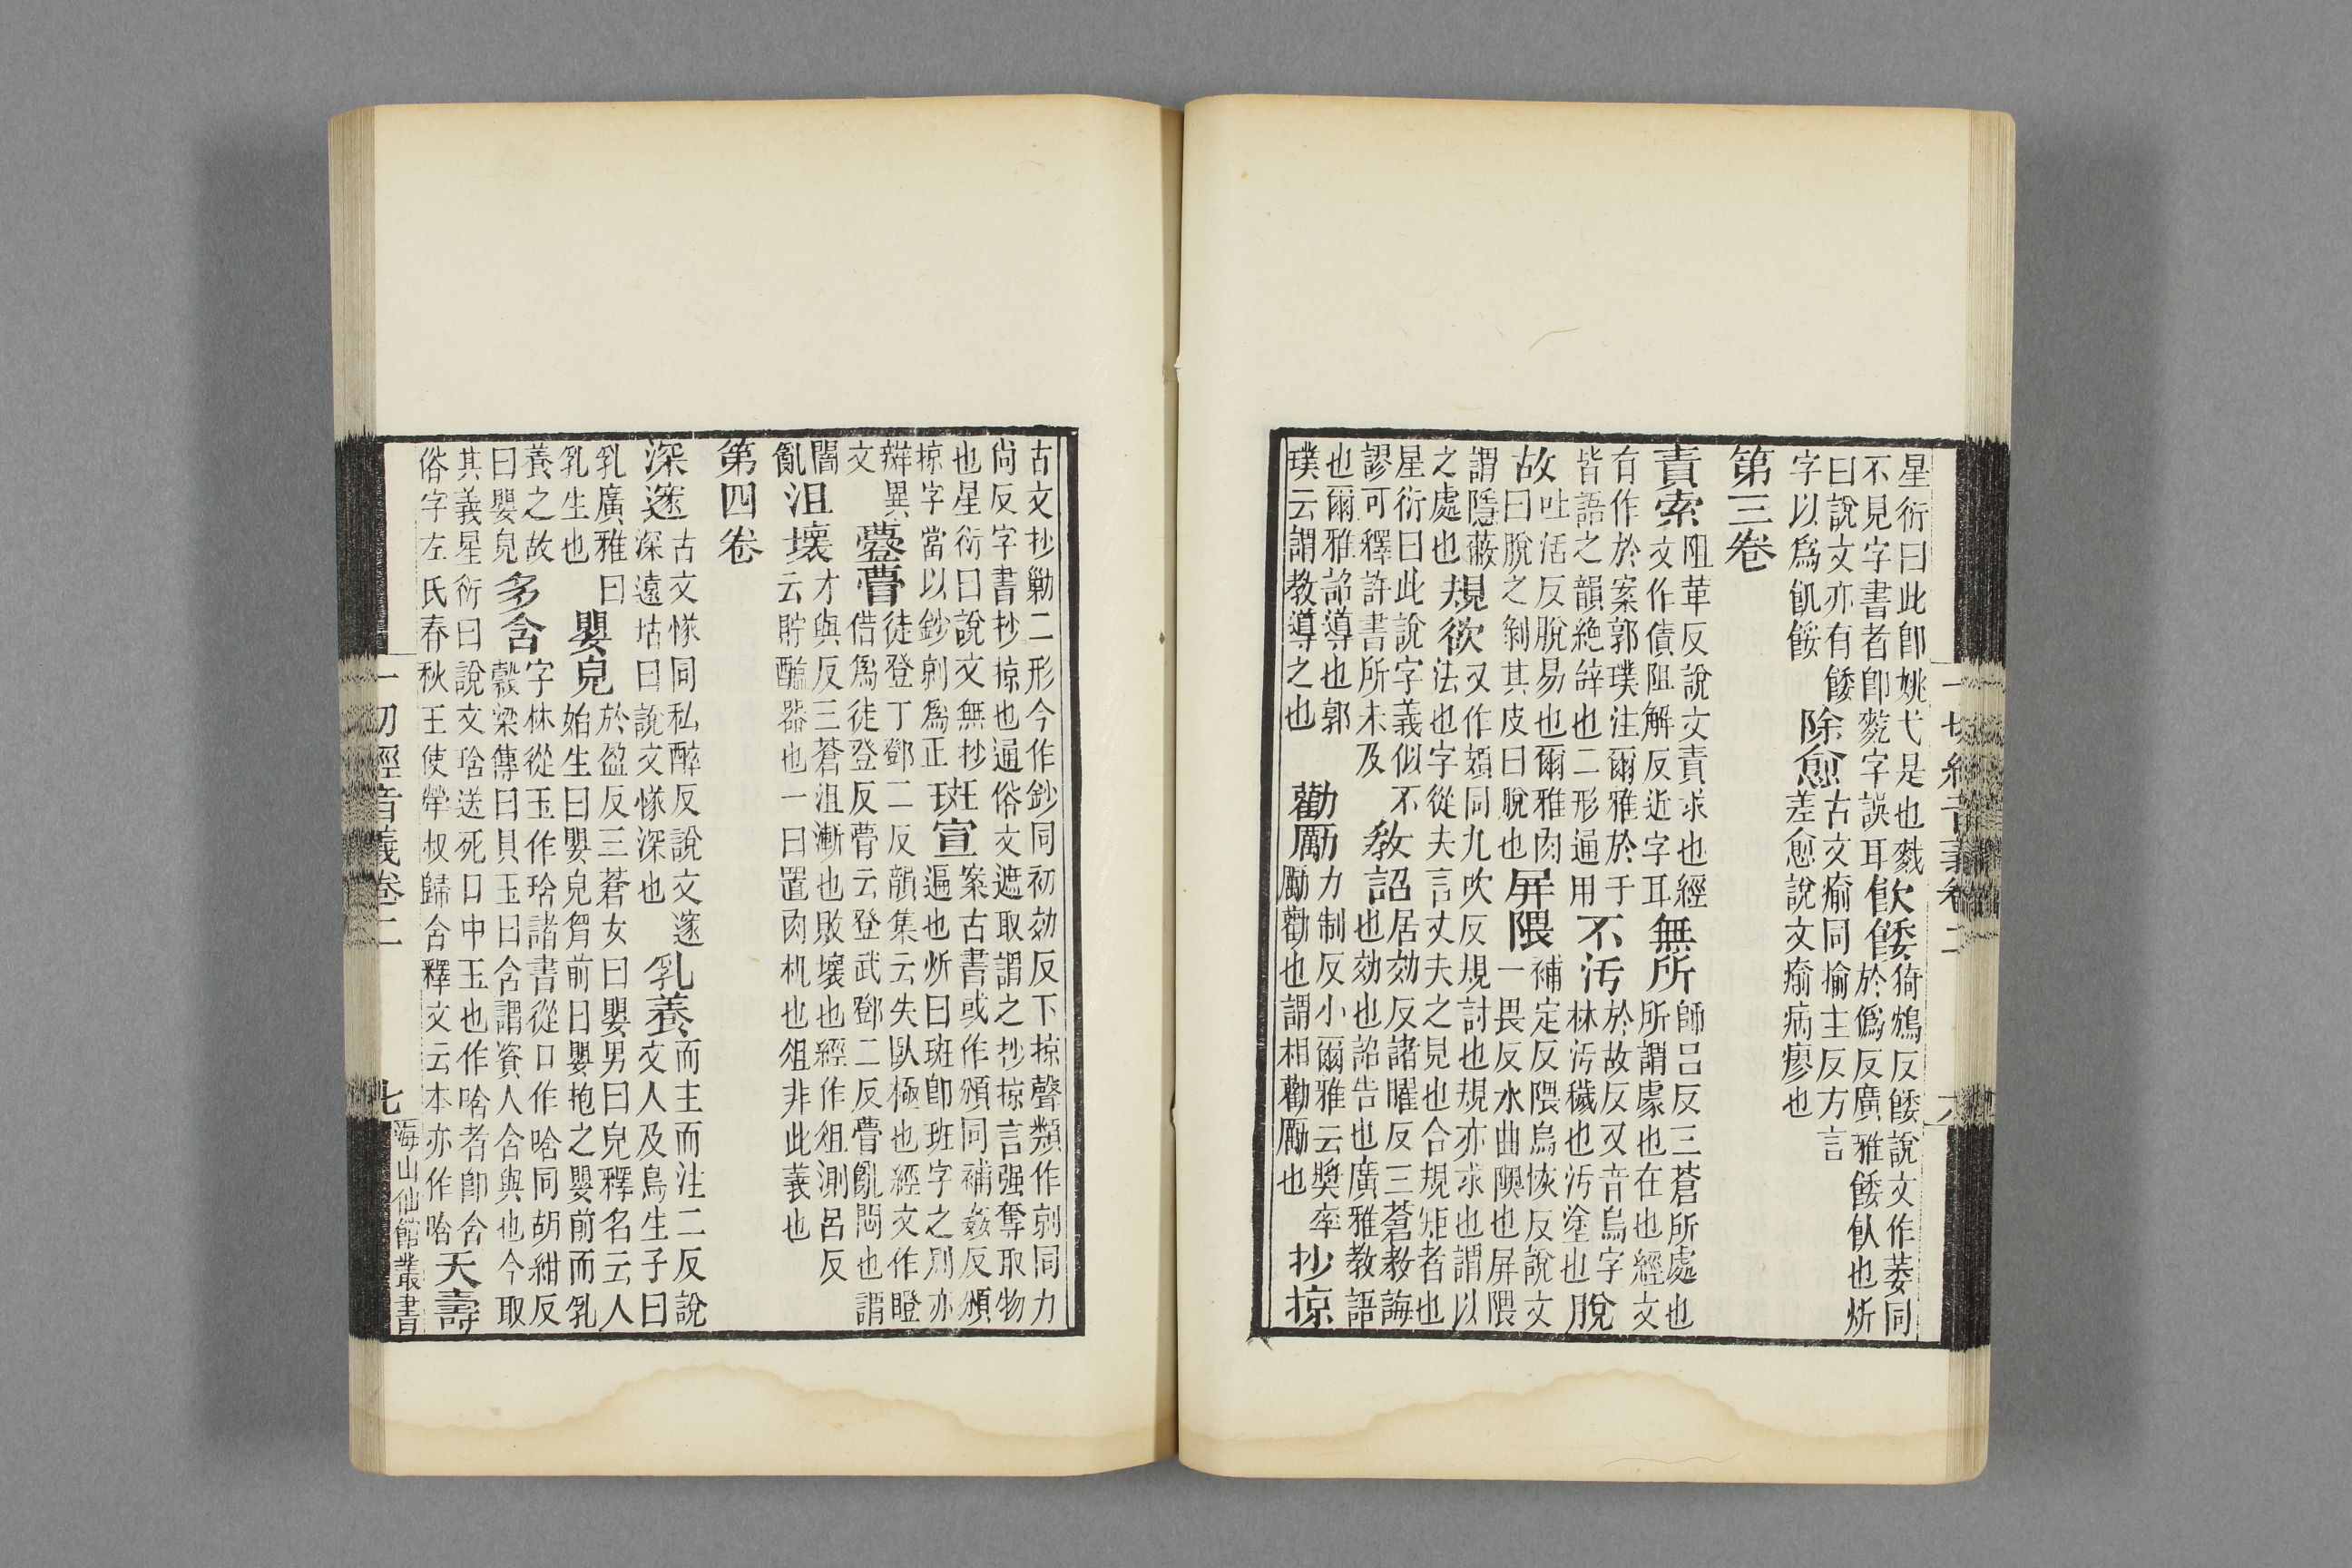 星衍曰此卽姚弋是也
不見字書者卽字誤耳飲餧猗鴆反餧說文作萎同
於僞反廣雅餧飤也炘
曰說文亦有餧
字以爲飢餒除愈古文瘉同揄主反方言
差愈說文瘉病瘳也
第三卷
責索阻革反說文責求也經
文作債阻解反近字耳無所師吕反三蒼所處也
所謂處也在也經文
有作於案郭璞注爾雅於于
皆語之韻絶辭也二形通用不汚於故反又音烏字
林汚穢也汚塗也脫
故吐活反脫易也爾雅肉
曰脫之剝其皮曰脫也屏隈補定反隈烏恢反說文
一畏反水曲隩也屏隈
謂隱蔽
之處也規欲又作同九吹反規討也規亦求也謂以
法也字從夫言丈夫之見也合規矩者也
星衍曰此說字義似不
謬可釋許書所未及敎詔居効反諸曜反三蒼敎誨
也効也詔告也廣雅敎語
也爾雅詔導也郭
璞云謂教導之也勸厲力制反小爾雅云奬率
勵勸也謂相勸勵也抄掠
一切經音義卷二
六
古文抄勦二形今作鈔同初効反下掠聲類作剠同力
尚反字書抄掠也通俗文遮取謂之抄掠言强奪取物
也星衍曰說文無抄
掠字當以鈔剠爲正斑宣案古書或作頒同補姦反頒
遍也炘曰班卽班字之别亦
辯異
文䠬瞢徒登丁鄧二反韻集云失臥極也經文作瞪
借爲徒登反瞢云登武鄧二反瞢亂悶也謂
闇
亂沮壞才與反三蒼沮漸也敗壞也經作俎測呂反
云貯醢器也一曰置肉机也俎非此義也
第四卷
深邃古文㥞同私醉反說文邃
深遠坫曰說文㥞深也乳養而主而注二反說
文人及鳥生子曰
乳廣雅曰
乳生也嬰兒於盈反三蒼女曰嬰男曰兒釋名云人
始生曰嬰兒胷前曰嬰抱之嬰前而乳
養之故
曰嬰兒多含字林從玉作琀諸書從口作唅同胡紺反
穀梁傳曰貝玉曰含謂資人含與也今取
其義星衍曰說文琀送死口中玉也作唅者卽含
俗字左氏春秋王使犖叔歸含釋文云本亦作唅夭壽
一切經音義卷二
七
海山仙館叢書